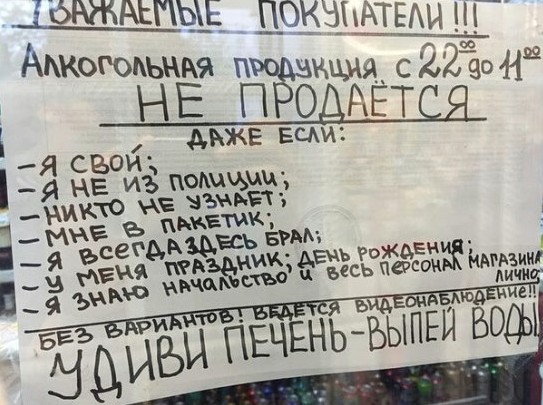 УВАЖАЕМЫЕ ПОКУПАТЕЛИ!!!
АЛКОГОЛЬНАЯ ПРОДУКЦИЯ С 22⁰⁰ до 11⁰⁰
НЕ ПРОДАЁТСЯ
ДАЖЕ ЕСЛИ:
- Я СВОЙ;
- Я НЕ ИЗ ПОЛИЦИИ;
- НИКТО НЕ УЗНАЕТ;
- МНЕ В ПАКЕТИК;
- Я ВСЕГДА ЗДЕСЬ БРАЛ;
- У МЕНЯ ПРАЗДНИК; ДЕНЬ РОЖДЕНИЯ;
- Я ЗНАЮ НАЧАЛЬСТВО И ВЕСЬ ПЕРСОНАЛ МАГАЗИНА
ЛИЧНО;
БЕЗ ВАРИАНТОВ! ВЕДЁТСЯ ВИДЕОНАБЛЮДЕНИЕ!!
УДИВИ ПЕЧЕНЬ-ВЫПЕЙ ВОДЫ